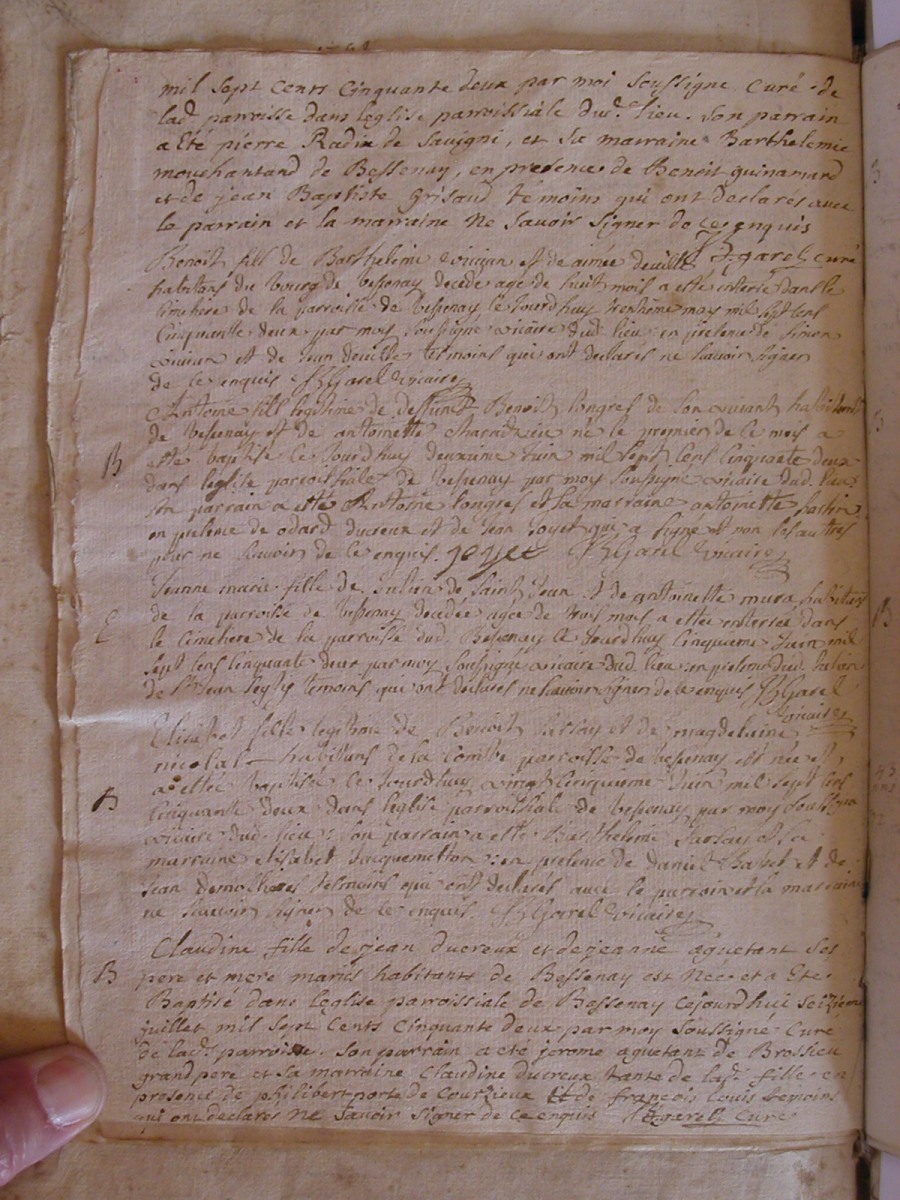 mil sept cents cinquante deux par moi soussigné curé de
lad. parroisse dans leglise parroissiale dud. lieu. son parrain
a Eté pierre Radix de Savigni, et sa marraine Barthelemie
mouchantand de Bessenay, en presence de Benoit guinamard
et de jean Baptiste Grisaud temoins qui ont declarés avec
le parrain et la marraine Ne savoir signer de ce enquis
B. garel curé
Benoist fils de Barthelemi vivian et de aimée deville
habitans du bourg de bessenay decede age de huit mois a esté enterré dans le
cimetiere de la parroisse de bessenay ce jourdhuy trentieme may mil sept cens
cinquante deux par moy soussigne vicaire dud lieu en presence de simon
vivian et de jean deville temoins qui ont declarés ne scavoir signer
de ce enquis B Garel vicaire
Antoine fill legitime de deffunt Benoist longres de son vivant habitant
de bessenay et de antoinette né le premier de ce mois a
B
esté baptisé ce jourdhuy deuxieme juin mil sept cens cinquante deux
dans leglise parroissiale de bessenay par moy soussigne vicaire dud. lieu
son parrain a esté Antoine longres et sa marraine antoinette
en presence de odard ducreux et de jean joyet qui a signe et non les autres
pour ne scavoir de ce enquis. joyet B Garel vicaire
Jeanne marie fille de julien de saint jean et de antoinette mura habitans
de la parroisse de bessenay decedée agée de trois mois a estée enterrée dans
E
le cimetiere de la parroisse dud. Bessenay ce jourdhuy cinquieme juin mil
sept cens cinquante deux par moy soussigne vicaire dud. lieu en presence dud. julien
de St jean temoins qui ont declares ne scavoir signer de ce enquis B Garel
vicaire
Elisabet fille legitime de Benoist et de magdelaine
nicolat habitans de la Combe parroisse de bessenay est née et
a estée baptisée ce jourdhuy vingt cinquieme juin mil sept cens
B
cinquante deux dans leglise parroissiale de bessenay par moy soussigne
vicaire dud. lieu : son parrain a esté Barthelemi et sa
marraine elisabet jacquemetton : en presence de daniel et de
jean temoins qui ont declarés avec le parrain et la marraine
ne scavoir signer de ce enquis. B Garel vicaire
Claudine fille de jean ducreux et de jeanne aguetant ses
B
pere et mere mariés habitants de Bessenay est Nee et a Eté
Baptisé dans leglise parroissiale de Bessenay cejourdhui seizieme
juillet mil sept cents cinquante deux par moy soussigné curé
de lad. parroisse. son parrain a eté jerome aguetant de Brossieu
grand pere et sa marraine claudine ducreux tante de lad. fille en
presence de philibert porte de Courzieux Et de françois Louis temoins
qui ont declarés ne savoir signer de ce enquis B garel curé